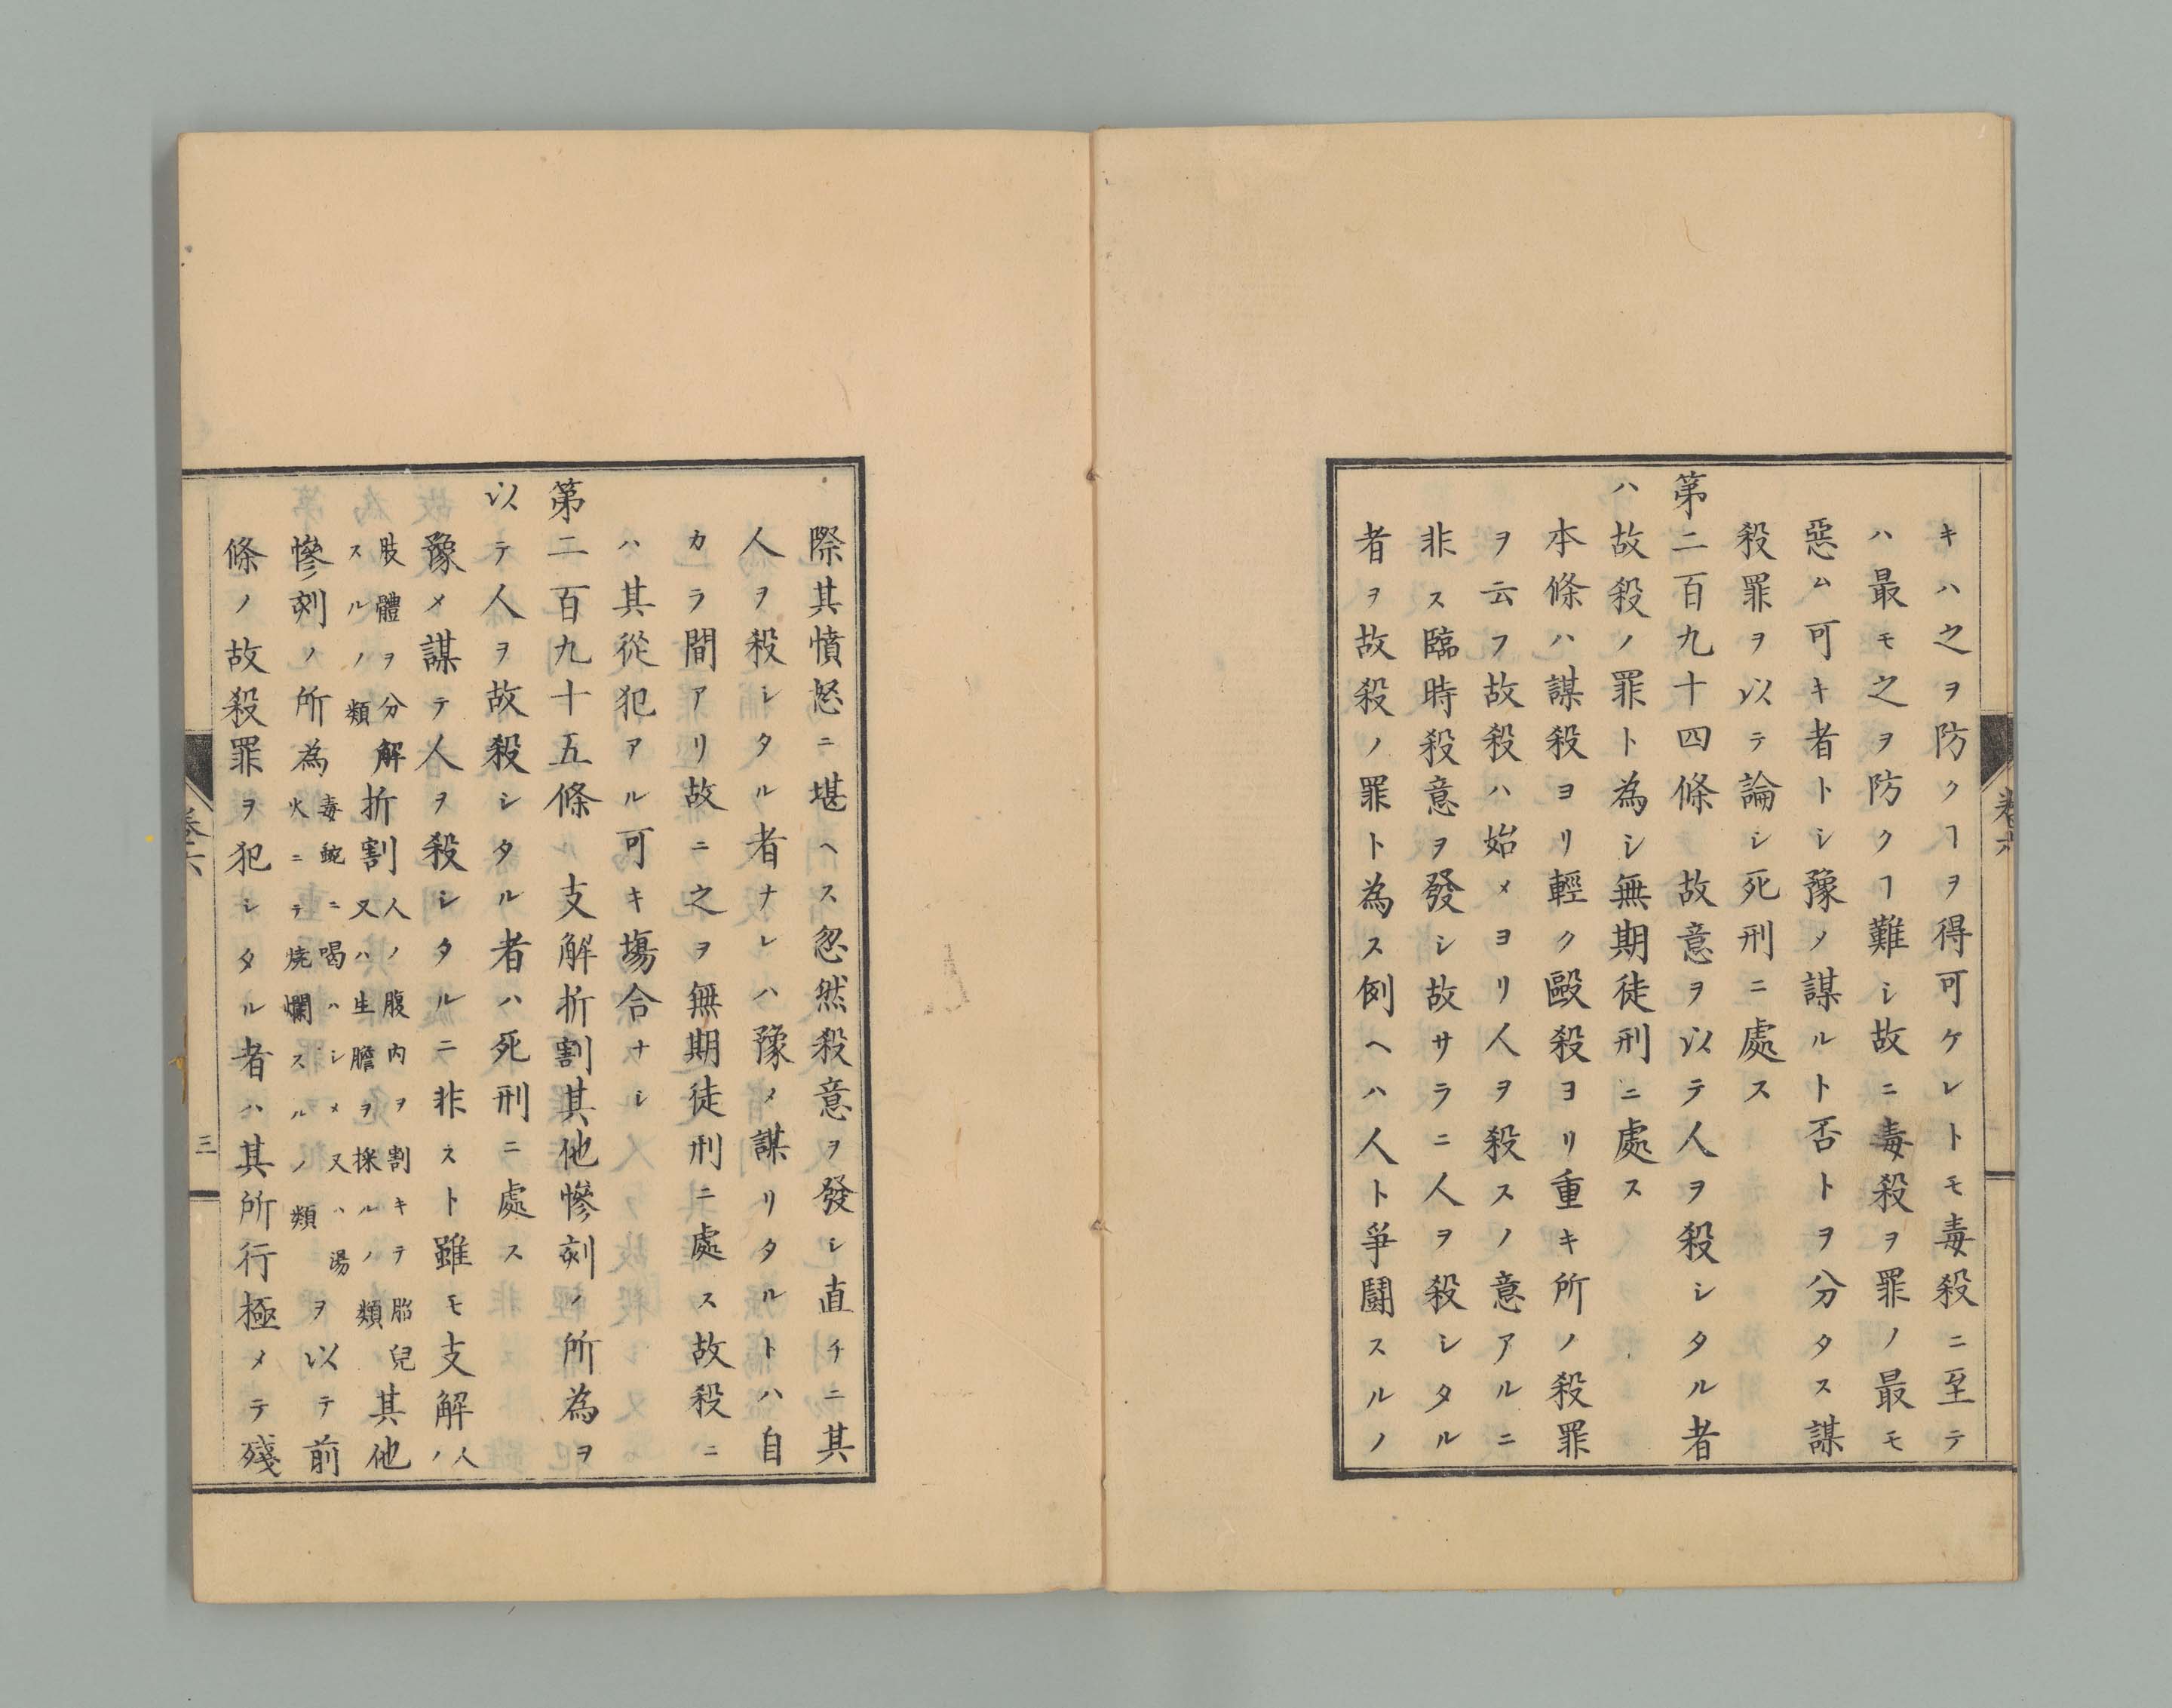 キハ之ヲ防クヿヲ得可ケレトモ毒殺ニ至テ
ハ最モ之ヲ防クヿ難シ故ニ毒殺ヲ罪ノ最モ
惡ム可キ者トシ豫メ謀ルト否トヲ分タス謀
殺罪ヲ以テ論シ死刑ニ處ス
第二百九十四條 故意ヲ以テ人ヲ殺シタル者
ハ故殺ノ罪ト為シ無期徒刑ニ處ス
本條ハ謀殺ヨリ輕ク毆殺ヨリ重キ所ノ殺罪
ヲ云フ故殺ハ始メヨリ人ヲ殺スノ意アルニ
非ス臨時殺意ヲ發シ故サラニ人ヲ殺シタル
者ヲ故殺ノ罪ト為ス例ヘハ人ト爭鬪スルノ
卷六
際其憤怒ニ堪ヘス忽然殺意ヲ發シ直チニ其
人ヲ殺シタル者ナレハ豫メ謀リタルトハ自
カラ間アリ故ニ之ヲ無期徒刑ニ處ス故殺ニ
ハ其從犯アル可キ塲合ナシ
第二百九十五條 支解折割其他慘刻ノ所為ヲ
以テ人ヲ故殺シタル者ハ死刑ニ處ス
豫メ謀テ人ヲ殺シタルニ非スト雖モ支解人ノ
肢體ヲ分解スルノ類折割人ノ腹内ヲ割キテ胎兒又ハ生膽ヲ採ルノ類其他
慘刻ノ所為毒蛇ニ喝ハシメ又ハ湯火ニテ燒爛スルノ類ヲ以テ前
條ノ故殺罪ヲ犯シタル者ハ其所行極メテ殘
卷六
三